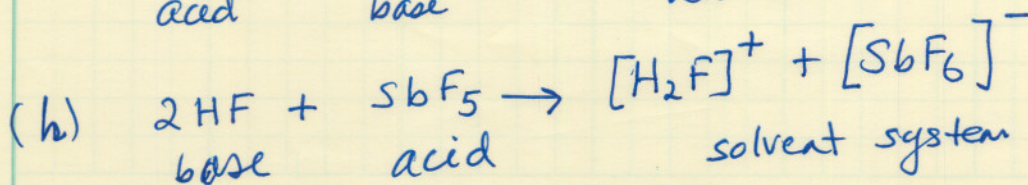 acid base
(h) 2 HF + SbF₅ → [H₂F]⁺ + [SbF₆]⁻
base acid solvent system